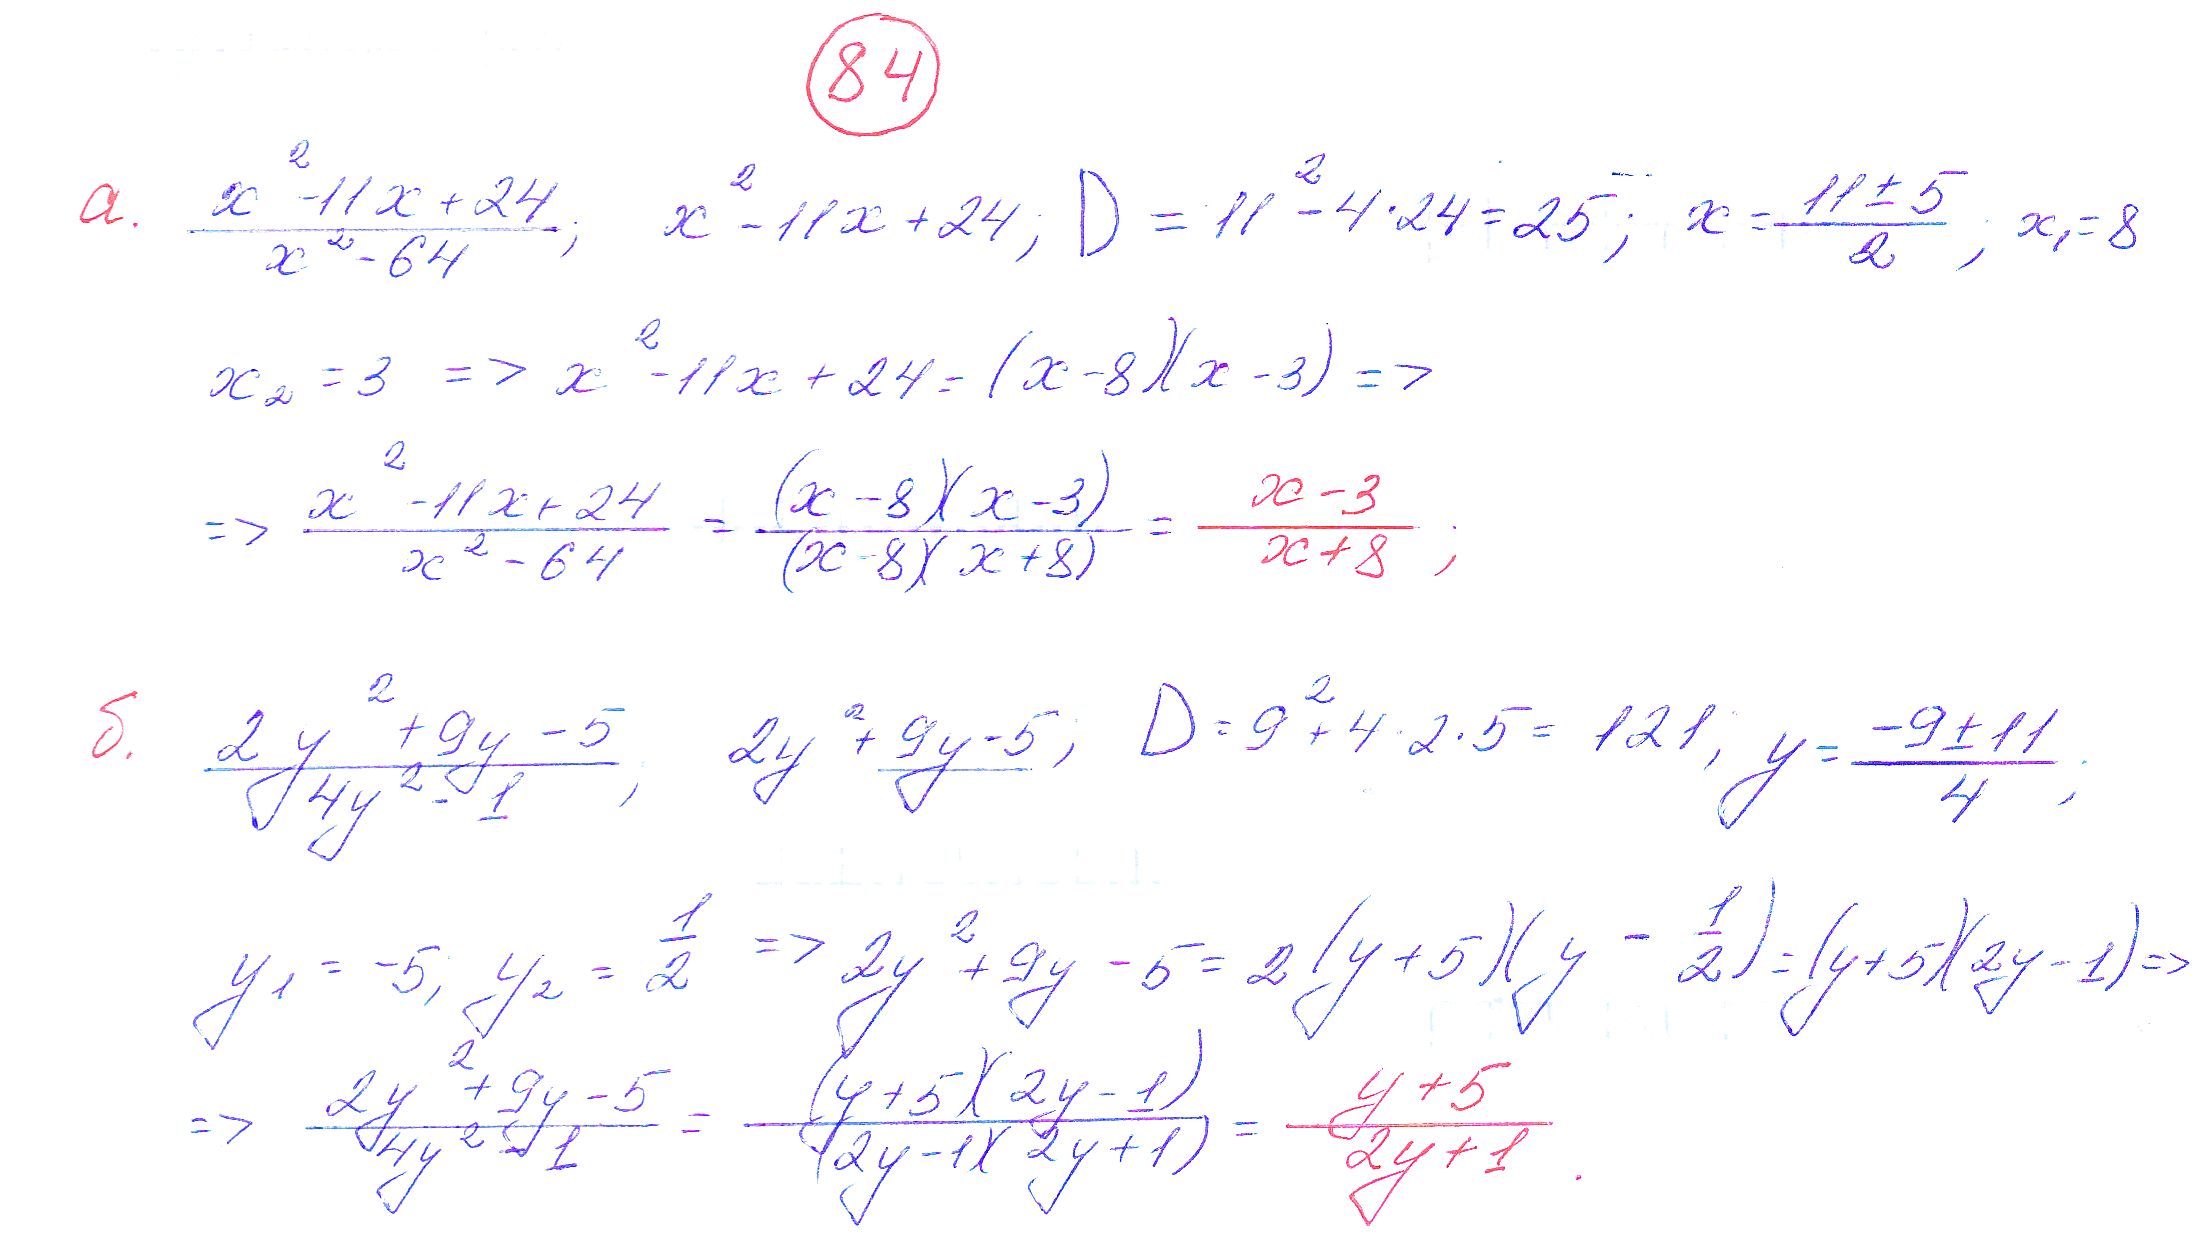 84
а. (x² - 11x + 24)/(x² - 64); x² - 11x + 24; D = 11² - 4·24 = 25; x = (11 ± 5)/2; x₁ = 8
x₂ = 3 => x² - 11x + 24 = (x - 8)(x - 3) =>
=> (x² - 11x + 24)/(x² - 64) = ((x - 8)(x - 3))/((x - 8)(x + 8)) = (x - 3)/(x + 8);
б. (2y² + 9y - 5)/(4y² - 1); 2y² + 9y - 5; D = 9² + 4·2·5 = 121; y = (-9 ± 11)/4;
y₁ = -5; y₂ = 1/2 => 2y² + 9y - 5 = 2(y + 5)(y - 1/2) = (y + 5)(2y - 1) =>
=> (2y² + 9y - 5)/(4y² - 1) = ((y + 5)(2y - 1))/((2y - 1)(2y + 1)) = (y + 5)/(2y + 1).